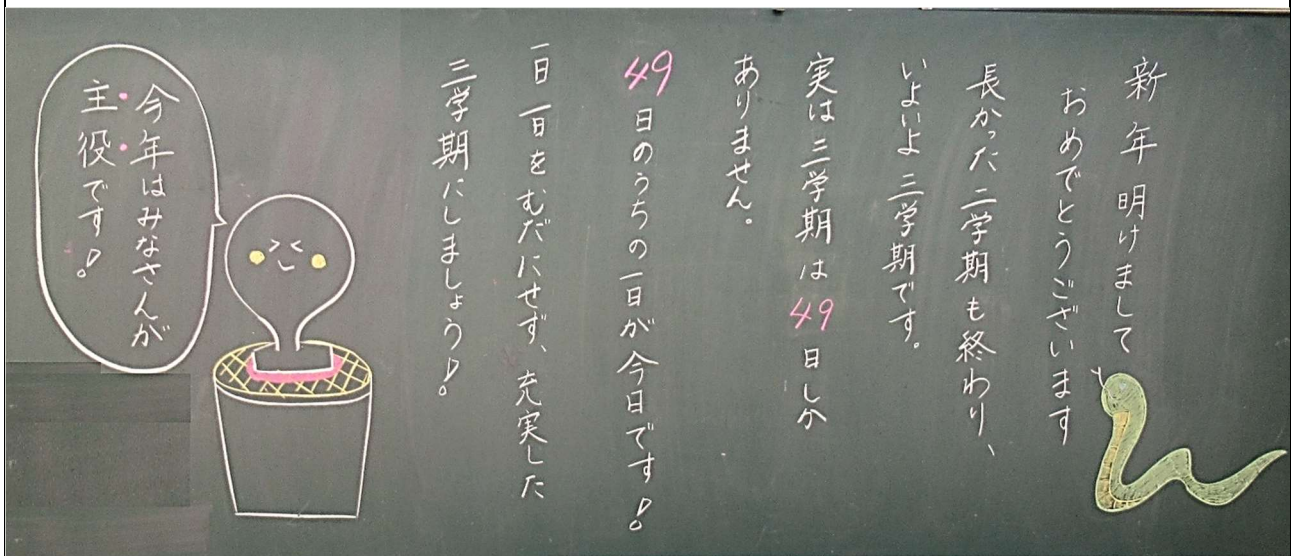 新年明けまして
おめでとうございます
長かった二学期も終わり、
いよいよ三学期です。
実は三学期は49日しか
ありません。
49日のうちの一日が今日です!
一日一日をむだにせず、充実した
三学期にしましょう!
今年はみなさんが
主役です!